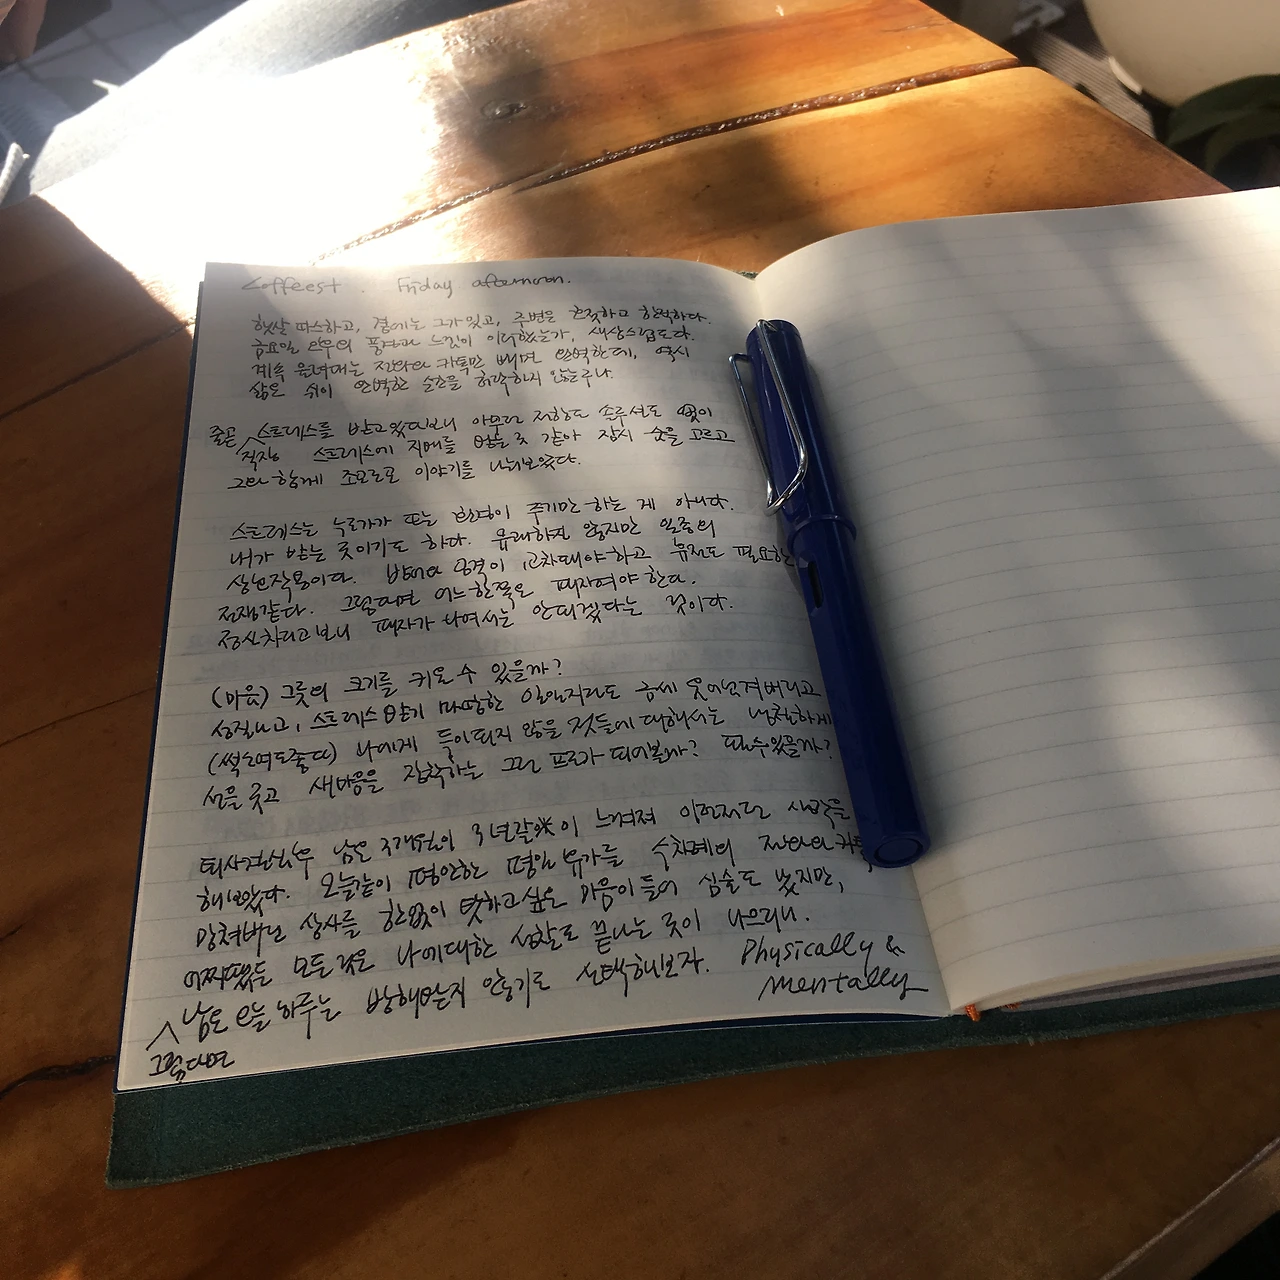 Coffeest. Friday afternoon.
햇살 따스하고, 곁에는 그가 있고, 주변은 한적하다.
금요일 오후의 풍경과 느낌이 이러했는가, 새삼스럽도다.
계속 울려대는 전화와 카톡만 빼면 완벽한데, 역시
삶은 쉬이 완벽한 순간을 허락하지 않는구나.
줄곧 스트레스를 받고 있다보니 아무런 저항도 솔루션도 없이
직장
스트레스에 지배를 받는 것 같아 잠시 숨을 고르고
그와 함께 조모로모 이야기를 나눠보았다.
스트레스는 누군가가 또는 환경이 주기만 하는 게 아니다.
내가 받는 것이기도 하다. 유쾌하진 않지만 일종의
상호작용이다. 방어와 공격이 교차돼야하고 휴전도 필요한
전쟁같다. 그렇다면 어느 한쪽은 패자여야 한다.
정신차리고 보니 패자가 나여서는 안되겠다는 것이다.
(마음) 그릇의 크기를 키울 수 있을까?
성질나고, 스트레스 받기 마땅한 일일지라도 금세 웃어넘겨버리고
(썩소여도 좋다) 나에게 득이 되지 않을 것들에 대해서는 냉철하게
선을 긋고 새마음을 장착하는 그런 프로가 되어볼까? 될 수 있을까?
퇴사결심 후 남은 3개월이 3년같 이 느껴져 이런저런 생각을
해보았다. 오늘같이 평안한 평일 휴가를 수차례의 전화와 카톡
망쳐버린 상사를 한없이 탓하고 싶은 마음이 들어 심술도 났지만,
어찌됐든 모든 것은 나에 대한 성찰로 끝나는 것이 나으리니.
남은 오늘 하루는 방해받지 않기로 선택해보자. Physically &
mentally
그렇다면